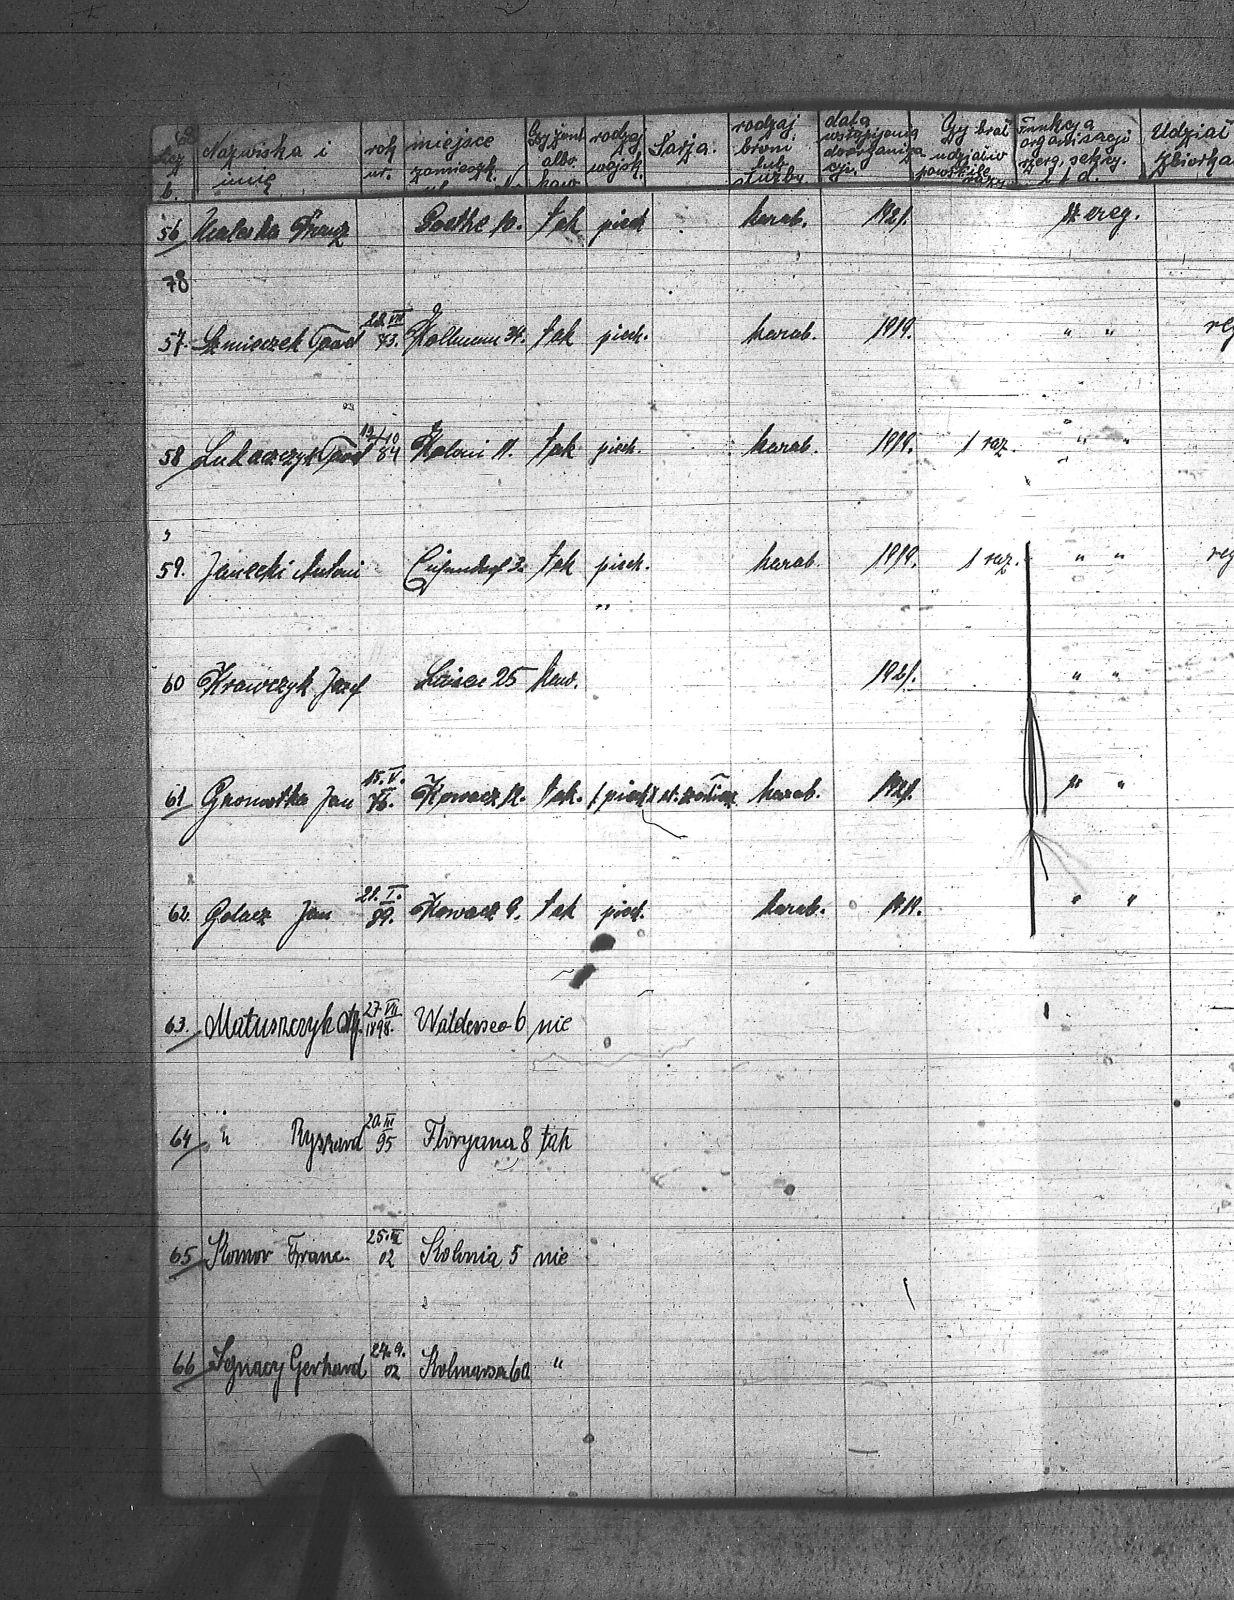 Nazwiska i imię rok ur. miejsce zamieszk. Czy żonat. albo kaw. rodzaj wojsk. Šarja. rodzaj broni lub służby data wstąpienia do organiza cji Czy brał udział w powstaniu Funkcja organisacji szerg. sekcyj. i t. d. Udział Zbiórka
56 Franz Goethe 10. tak piech karab. 1921. szereg.
78
57. Paweł 28. VII 83. 34. tak piech. karab. 1919. " "
58 Łukaszczyk Paweł 19/10 84 Koloni 11. tak piech. karab. 1919. 1 raz. " "
59. Janecki Antoni tak piech. karab. 1919. 1 raz. " "
"
60 Krawczyk Józef 25 kaw. 1921. " "
61 Jan 15. V. 76. Kowacz 12. tak. piech. karab. 1921. "
62. Golacz Jan 21. I. 89. Kowacz 9. tak piech. karab. 1919. " "
63. Matuszczyk 27. VII 1898. Waldersea 6 nie
64 " Ryszard 20. III 95 Floryana 8 tak
65 Komor Franc. 25. III 02 Kolonia 5 nie
66 Ignacy Gerhard 24. 9. 02 Kolmarsa 60 "